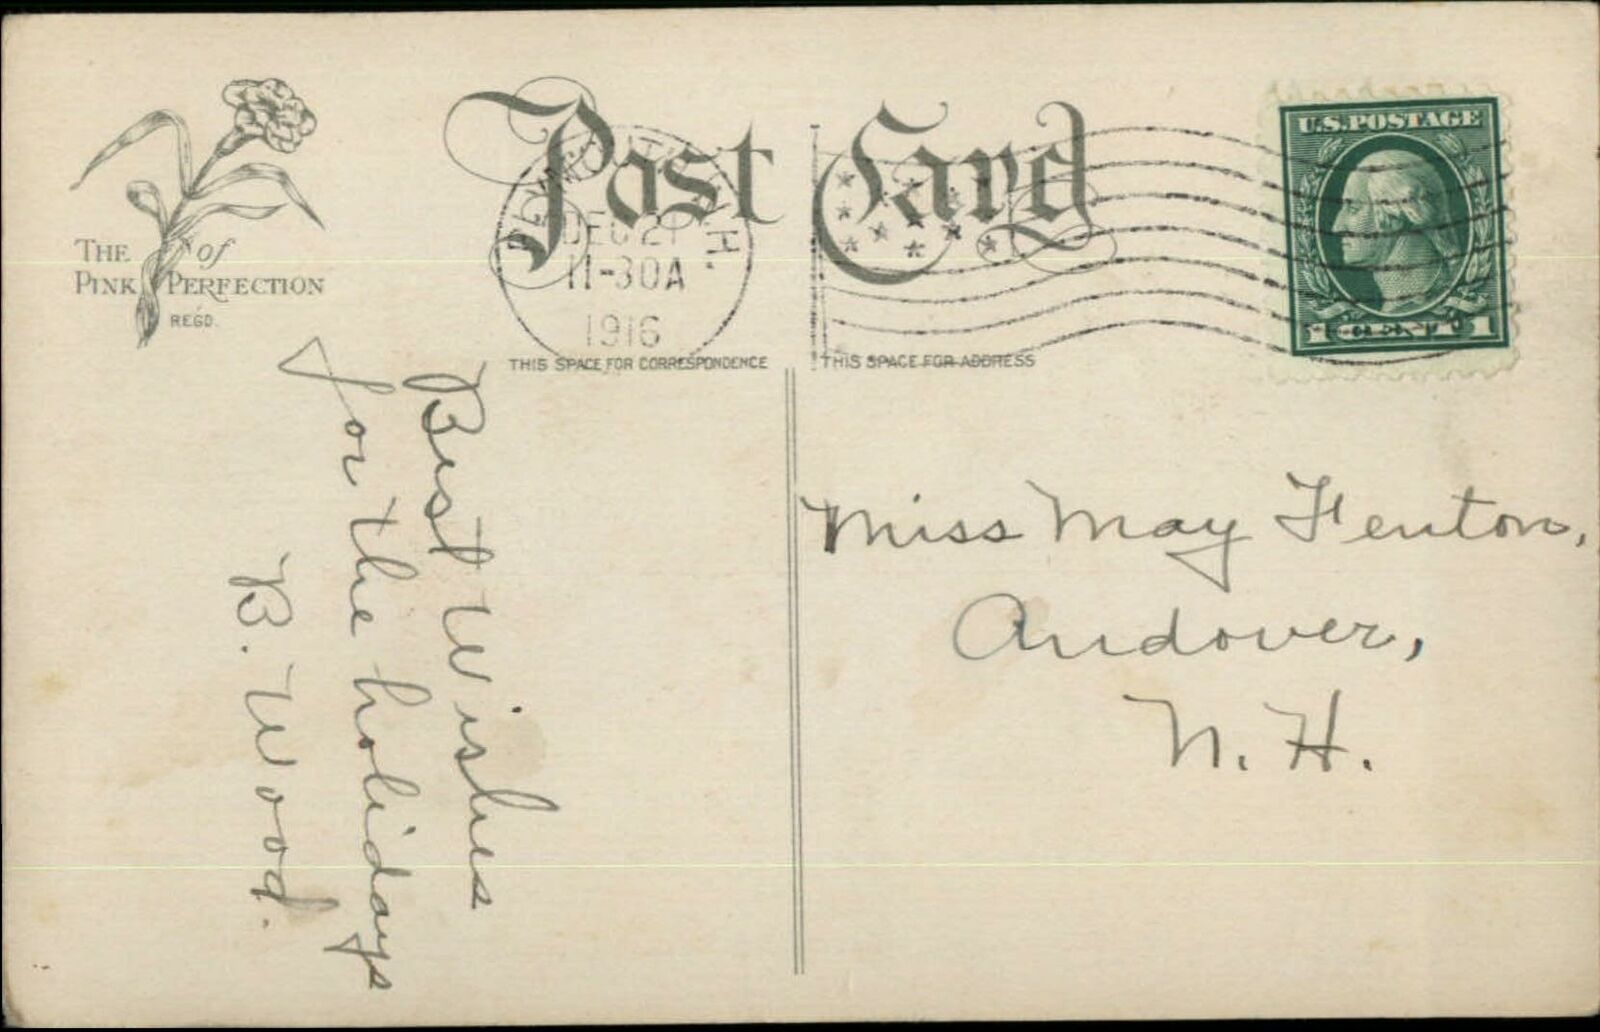 Post Card
THE of
PINK PERFECTION
REGD.
PLYMOUTH N.H.
DEC 21
11-30A
1916
U.S. POSTAGE
1 CENT 1
THIS SPACE FOR CORRESPONDENCE
THIS SPACE FOR ADDRESS
Best Wishes
for the holidays
B. Wood.
Miss May Fenton,
Andover,
N. H.